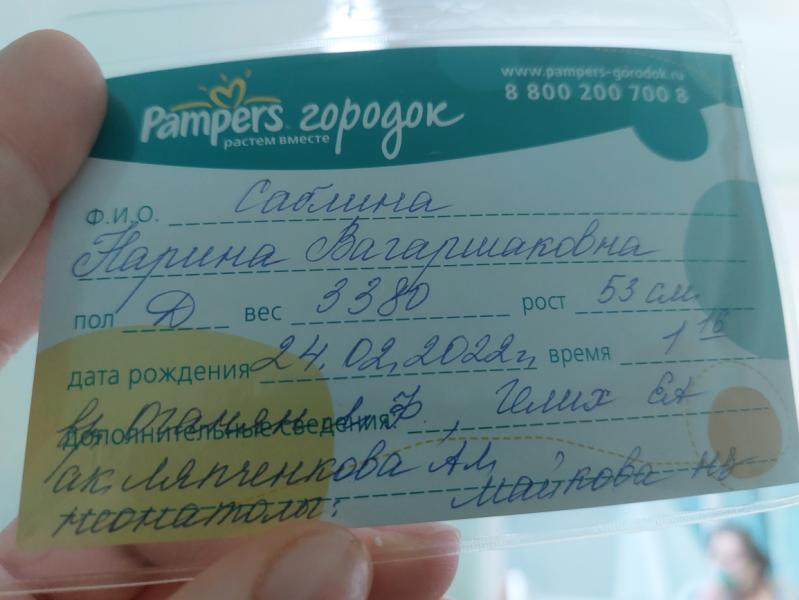 www.pampers-gorodok.ru
8 800 200 700 8
Pampers городок
растем вместе
Ф.И.О. Саблина
Нарина Вагаршаковна
пол Д вес 3380 рост 53 см
дата рождения 24.02.2022г. время 1 16
дополнительные сведения
вр. Оганян Гелих ЕА
ак. Ляпченкова А.М.
неонатолы: Майкова